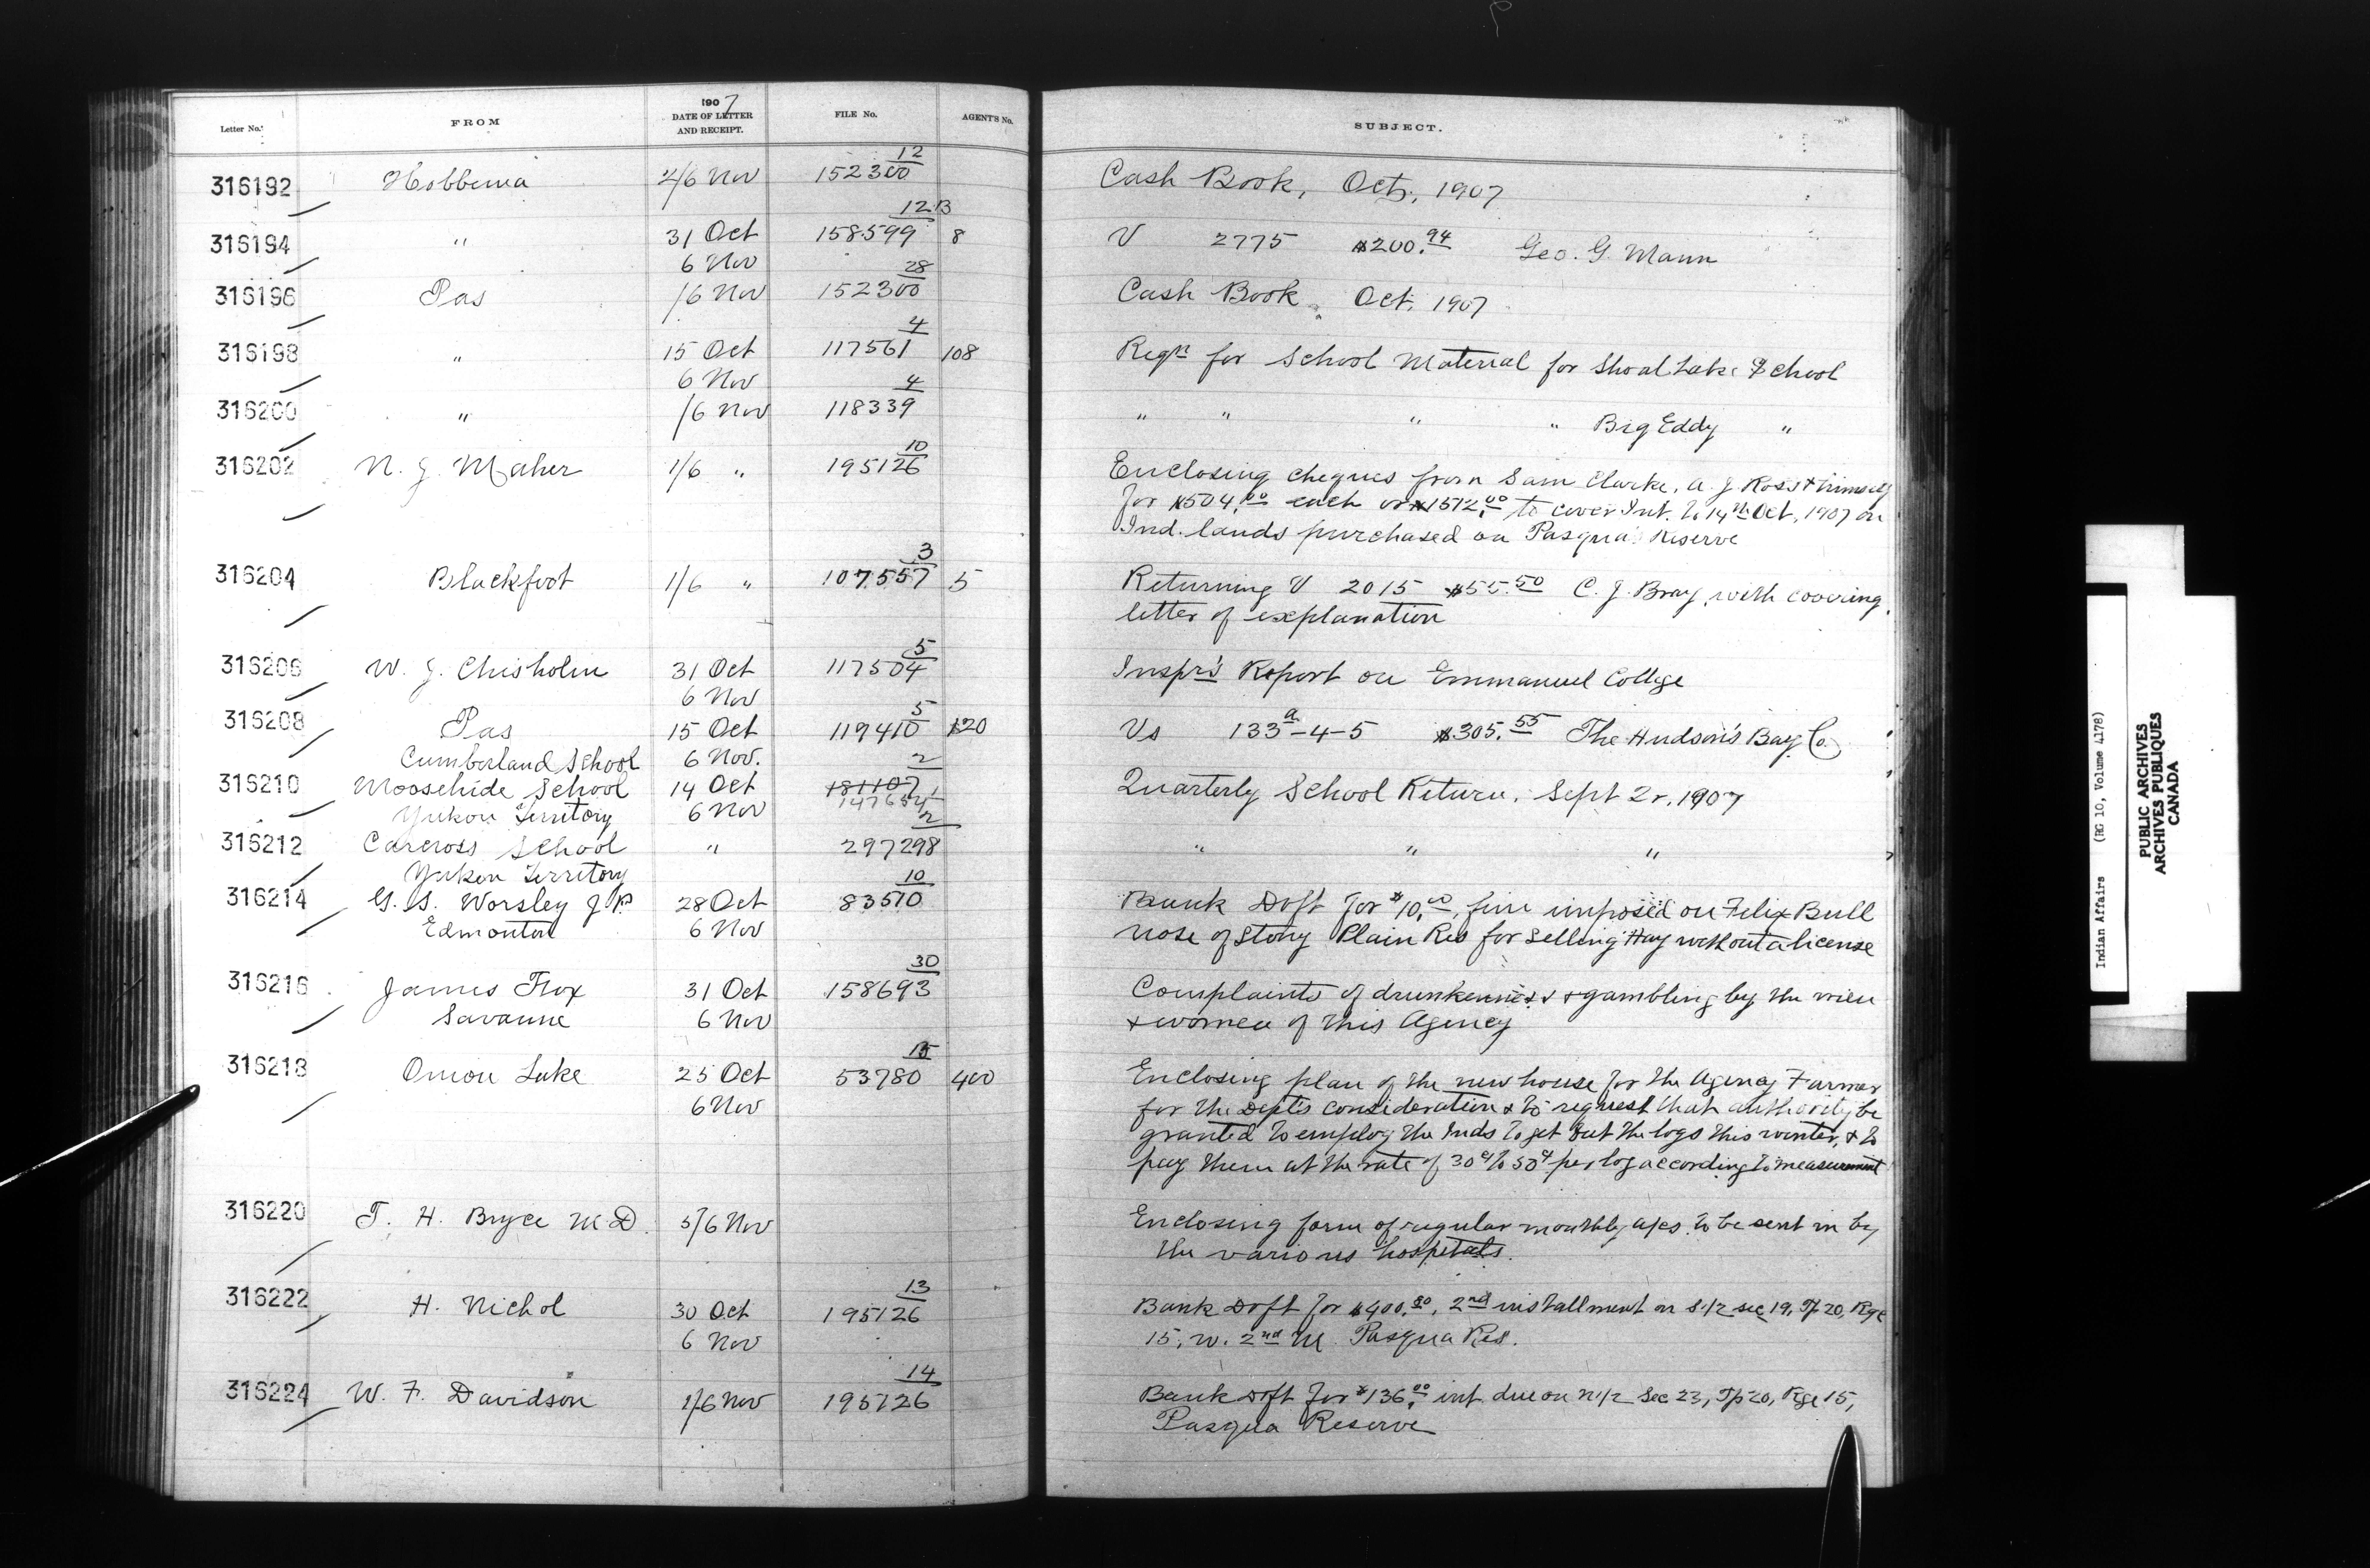 1907
Letter No. FROM DATE OF LETTER AND RECEIPT. FILE No. AGENT'S No. SUBJECT.
316192 Hobbema 4/6 Nov 152300 12 Cash Book, Oct, 1907
316194 " 31 Oct 158599 12B 8 V 2775 $200.94 Geo. G. Mann
6 Nov
316196 Pas /6 Nov 152300 28 Cash Book Oct. 1907
316198 " 15 Oct 117561 4 108 Reqn for School Material for Shoal Lake School
6 Nov
316200 " /6 Nov 118339 4 " " " " Big Eddy "
316202 N. J. Maher 1/6 " 195126 10 Enclosing cheques from Sam Clarke, A. J. Ross & himself
for $504.00 each or $1512.00 to cover Int. to 14th Oct, 1907 on
Ind. lands purchased on Pasqua Reserve
316204 Blackfoot 1/6 " 107557 3 5 Returning V 2015 $55.50 C. J. Bray, with covering
letter of explanation
316206 W. J. Chisholm 31 Oct 117504 5 Inspr's Report on Emmanuel College
6 Nov
316208 Pas 15 Oct 119410 5 120 Vs 133a-4-5 $305.55 The Hudson's Bay Co
Cumberland School 6 Nov.
316210 Moosehide School 14 Oct 181107 2 147654 1 Quarterly School Return, Sept Qr. 1907
Yukon Territory 6 Nov
316212 Carcross School " 297298 2 " " "
Yukon Territory
316214 G. S. Worsley J.P. 28 Oct 83510 10 Bank Dft for $10.00, fine imposed on Felix Bull
Edmonton 6 Nov nose of Stony Plain Res for selling Hay without a license
316216 James Fox 31 Oct 158693 30 Complaints of drunkenness & gambling by the men
Savanne 6 Nov & women of this Agency
316218 Onion Lake 25 Oct 53780 15 400 Enclosing plan of the new house for the Agency Farmer
6 Nov for the Dept's consideration & to request that authority be
granted to employ the Inds to get out the logs this winter, & to
pay them at the rate of 30¢ to 50¢ per log according to measurement
316220 T. H. Bryce M.D. 5/6 Nov Enclosing form of regular monthly a/cs. to be sent in by
the various hospitals.
316222 H. Nichol 30 Oct 195126 13 Bank Dft for $400.00, 2nd installment on S.1/2 sec 19, Tp 20, Rge
6 Nov 15, w. 2nd M. Pasqua Res.
316224 W. F. Davidson 1/6 Nov 195126 14 Bank Dft for $136.00 int due on N1/2 Sec 23, Tp 20, Rge 15,
Pasqua Reserve
Indian Affairs (RG 10, Volume 4178)
PUBLIC ARCHIVES
ARCHIVES PUBLIQUES
CANADA